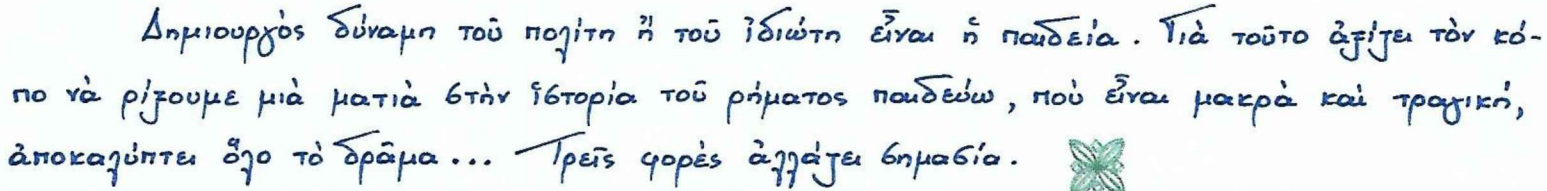 Δημιουργὸς δύναμη τοῦ πολίτη ἢ τοῦ ἰδιώτη εἶναι ἡ παιδεία. Γιὰ τοῦτο ἀξίζει τὸν κό-
πο νὰ ρίξουμε μιὰ ματιὰ στὴν ἱστορία τοῦ ρήματος παιδεύω, ποὺ εἶναι μακρὰ καὶ τραγική,
ἀποκαλύπτει ὅλο τὸ δρᾶμα... Τρεῖς φορὲς ἀλλάζει σημασία.